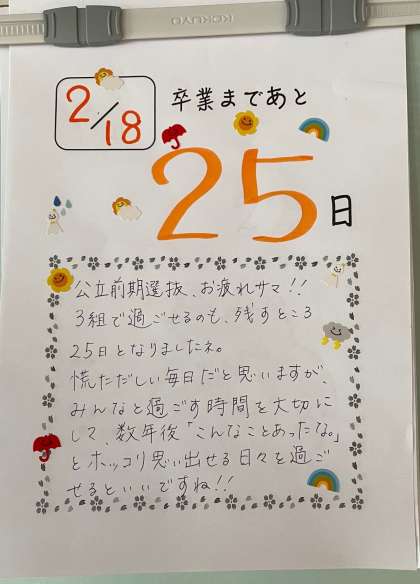 KOKUYO
2/18
卒業まであと
25日
公立前期選抜、お疲れサマ!!
3組で過ごせるのも、残すところ
25日となりましたネ。
慌ただしい毎日だと思いますが、
みんなと過ごす時間を大切に
して、数年後「こんなことあったな。」
とホッコリ思い出せる日々を過ご
せるといいですね!!